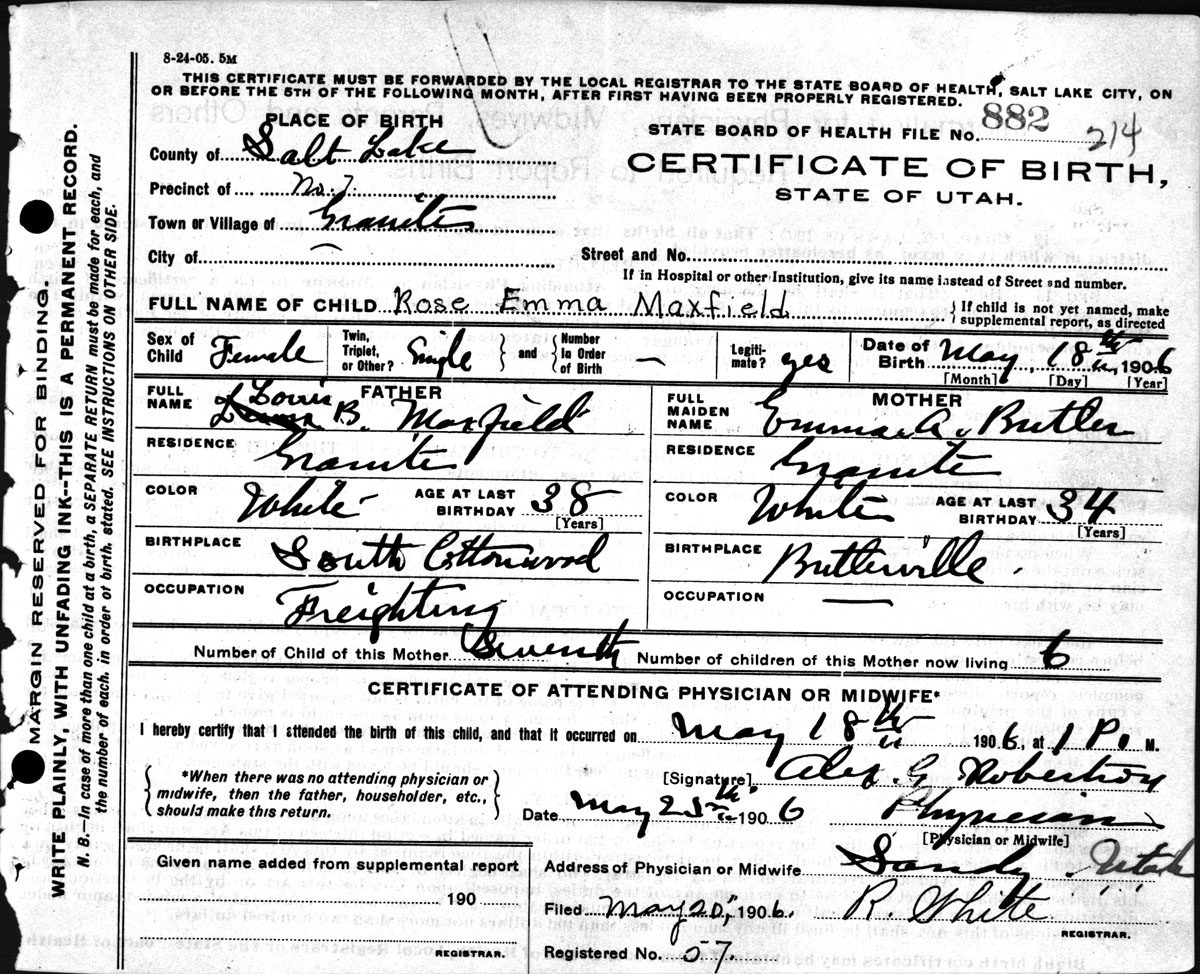 8-24-05. 5M
THIS CERTIFICATE MUST BE FORWARDED BY THE LOCAL REGISTRAR TO THE STATE BOARD OF HEALTH, SALT LAKE CITY, ON
OR BEFORE THE 5TH OF THE FOLLOWING MONTH, AFTER FIRST HAVING BEEN PROPERLY REGISTERED.
PLACE OF BIRTH
STATE BOARD OF HEALTH FILE No. 882 214
County of Salt Lake
CERTIFICATE OF BIRTH,
STATE OF UTAH.
Precinct of No. 7
Town or Village of Granite
City of —
Street and No.
If in Hospital or other Institution, give its name instead of Street and number.
FULL NAME OF CHILD Rose Emma Maxfield
{ If child is not yet named, make
supplemental report, as directed
Sex of Child Female
Twin, Triplet, or Other? Single } and { Number in Order of Birth —
Legiti-mate? yes
Date of Birth May, 18th, 1906
[Month] [Day] [Year]
FATHER
FULL NAME Louis B. Maxfield
RESIDENCE Granite
COLOR White AGE AT LAST BIRTHDAY 38
[Years]
BIRTHPLACE South Cottonwood
OCCUPATION Freighting
MOTHER
FULL MAIDEN NAME Emma A. Butler
RESIDENCE Granite
COLOR White AGE AT LAST BIRTHDAY 34
[Years]
BIRTHPLACE Butlerville.
OCCUPATION —
Number of Child of this Mother Seventh Number of children of this Mother now living 6
CERTIFICATE OF ATTENDING PHYSICIAN OR MIDWIFE*
I hereby certify that I attended the birth of this child, and that it occurred on May 18th 1906, at 1 P. M.
{ *When there was no attending physician or
midwife, then the father, householder, etc.,
should make this return. }
[Signature] Alex. G. Robertson
Date May 25th 1906 Physician
[Physician or Midwife]
Given name added from supplemental report
190
REGISTRAR.
Address of Physician or Midwife Sandy Utah
Filed May 25, 1906. R. White
REGISTRAR.
Registered No. 57
MARGIN RESERVED FOR BINDING.
WRITE PLAINLY, WITH UNFADING INK--THIS IS A PERMANENT RECORD.
N. B. In case of more than one child at a birth, a SEPARATE RETURN must be made for each, and
the number of each, in order of birth, stated. SEE INSTRUCTIONS ON OTHER SIDE.